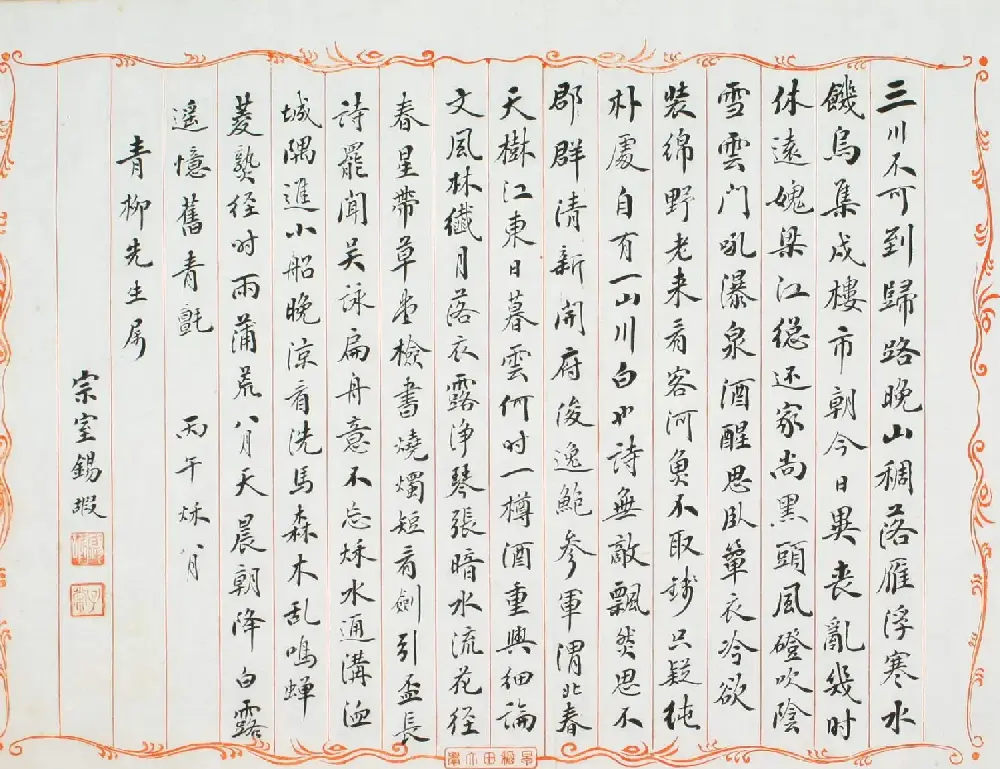 三川不可到歸路晚山稠落雁浮寒水
饑烏集戍樓市朝今日異喪亂幾時
休遠媿梁江總還家尚黑頭風磴吹陰
雪雲門吼瀑泉酒醒思臥簟衣冷欲
裝綿野老來看客河魚不取錢只疑純
朴處自有一山川白也詩無敵飄然思不
郡群清新開府俊逸鮑參軍渭北春
天樹江東日暮雲何時一樽酒重與細論
文風林纖月落衣露淨琴張暗水流花径
春星帶草堂檢書燒燭短看劍引盃長
詩罷聞吳詠扁舟意不忘秌水通溝洫
城隅進小船晚涼看洗馬森木乱鳴蟬
菱熟径时雨蒲荒八月天晨朝降白露
遙憶舊青氈 丙午秌八月
青柳先生属
宗室錫瑕
早稲田大學